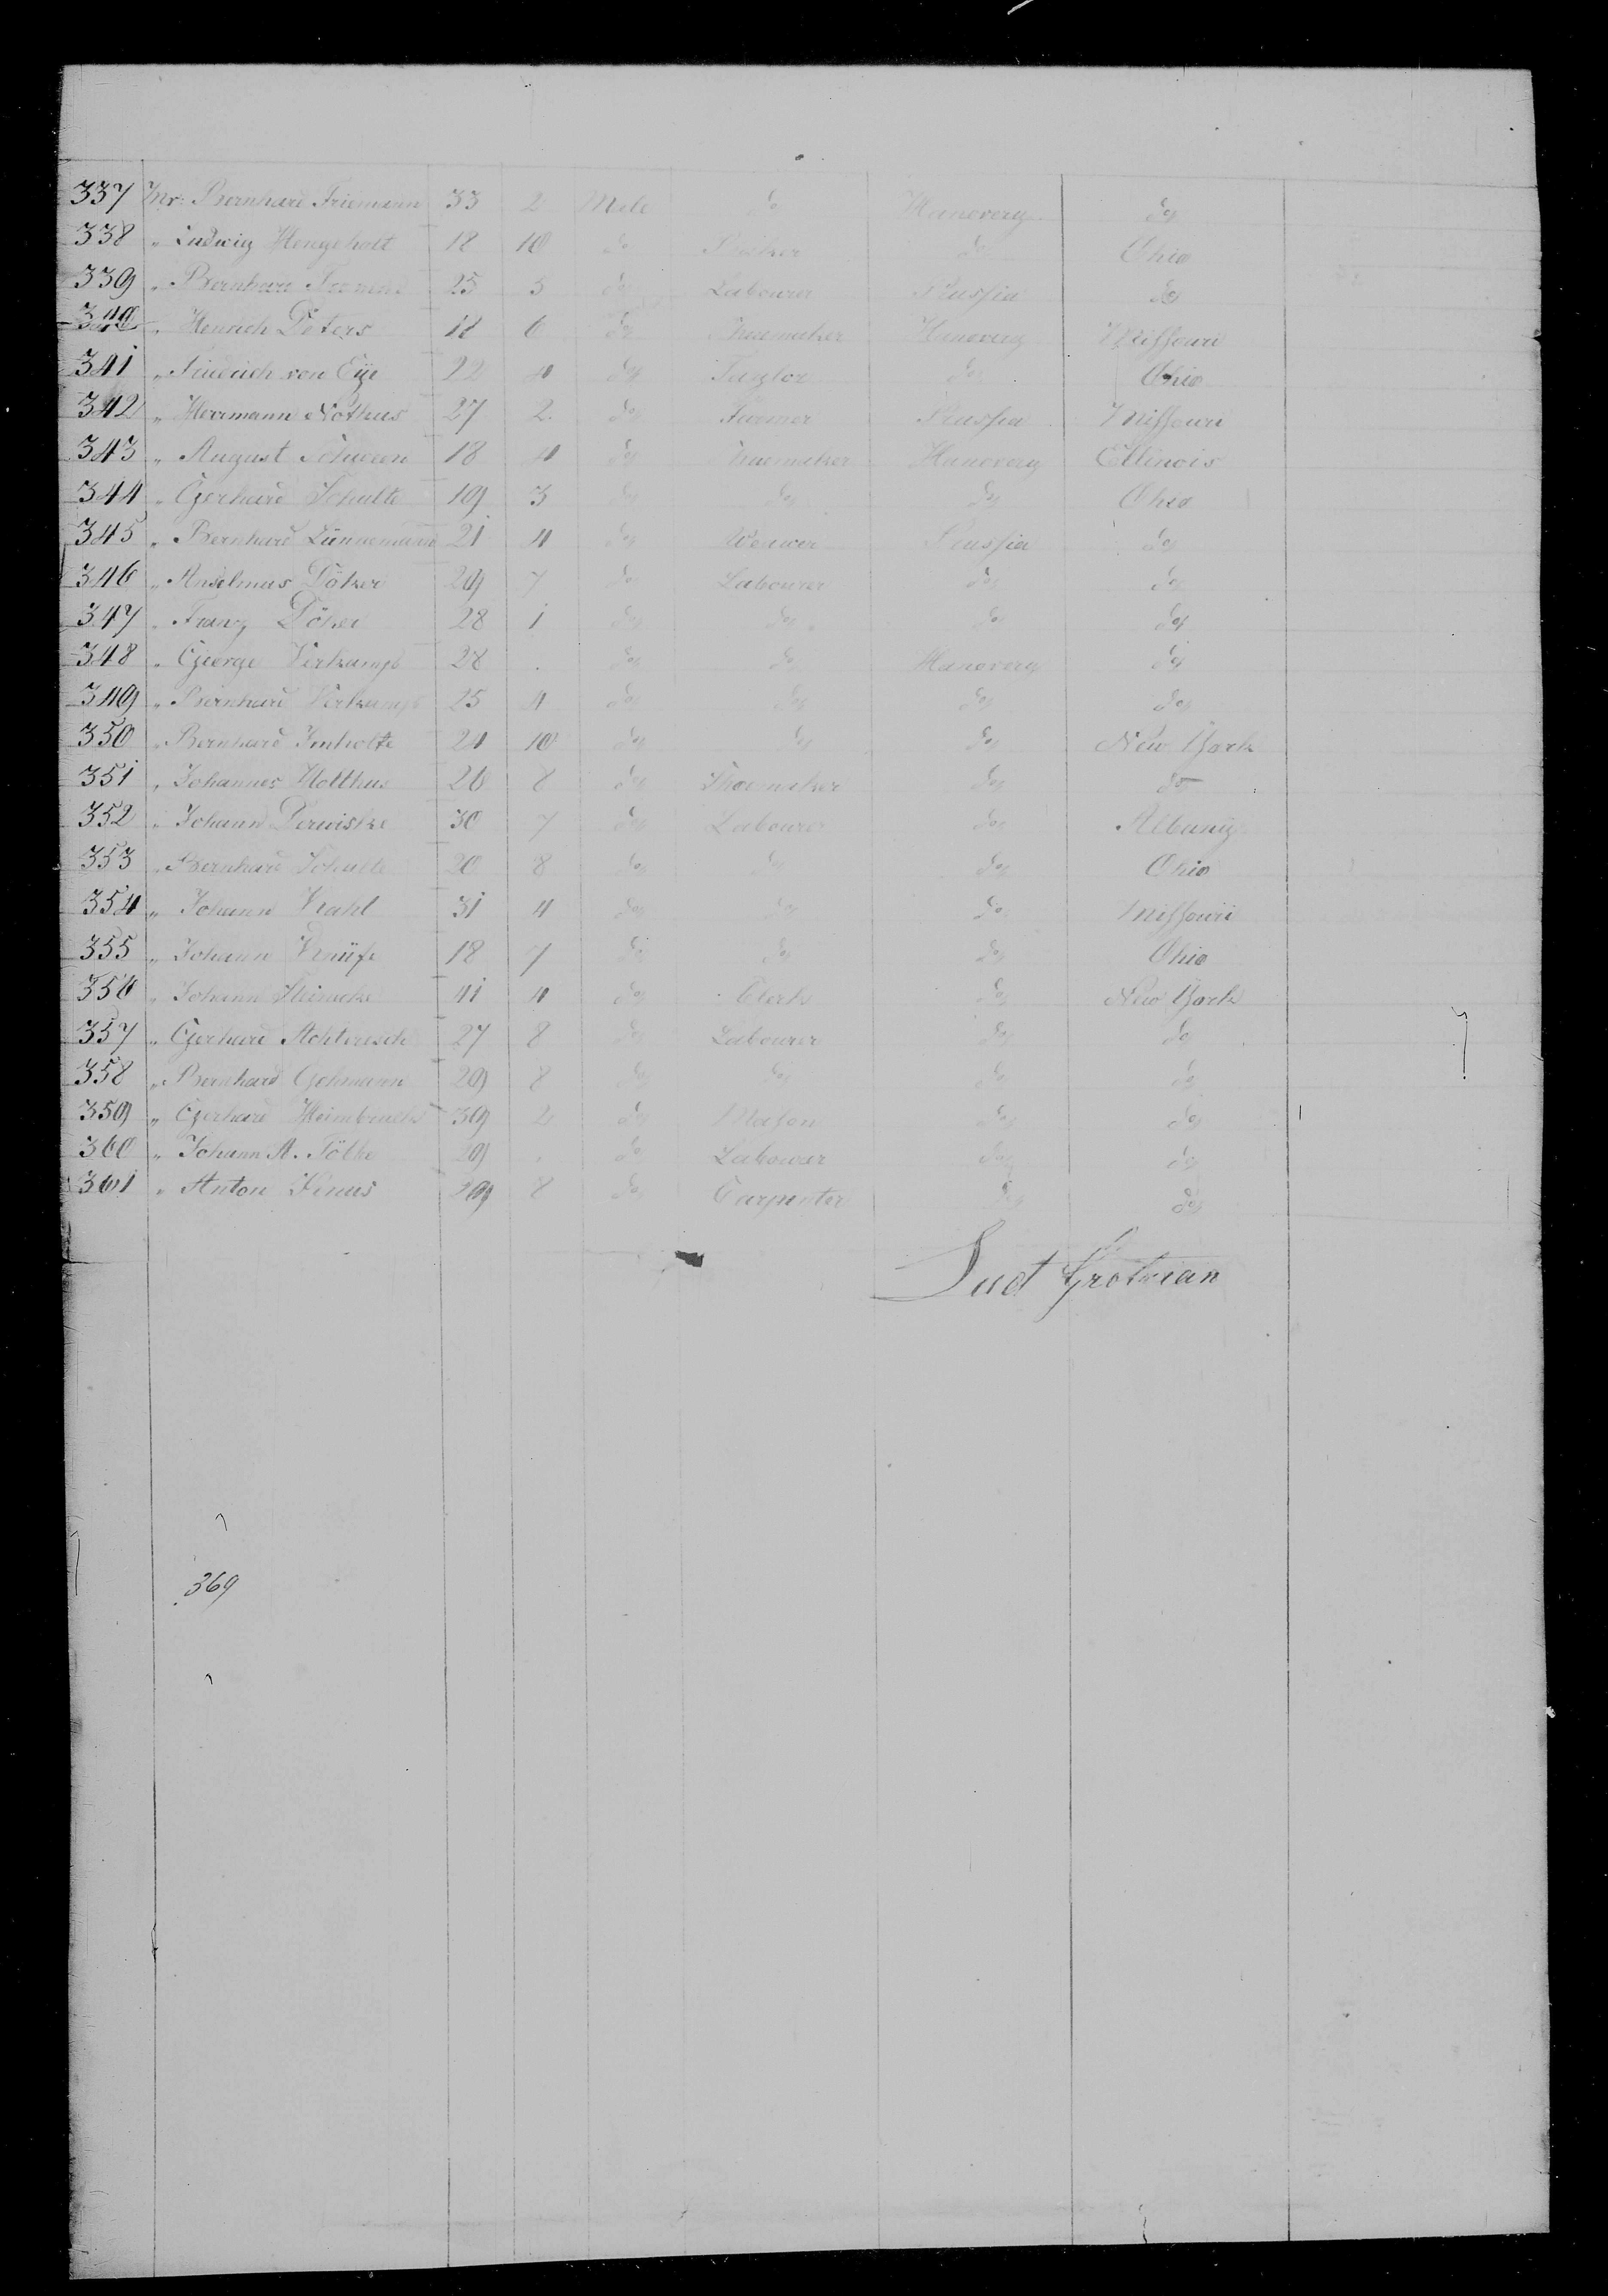 337 Mr. Bernhard Friemann 33 2 Male do Hanovery do
338 " Ludwig Hengeholt 18 10 do Baker do Ohio
339 " Bernhard 25 3 do Labourer Prussia do
340 " Heinrich Peters 18 6 do Shoemaker Hanovery Missouri
341 " Friedrich von Eye 22 4 do Taylor do Ohio
342 " Herrmann Nothus 27 2 do Farmer Prussia Missouri
343 " August 18 4 do Shoemaker Hanovery Ellinois
344 " Gerhard Schulte 19 3 do do do Ohio
345 " Bernhard Lünnemann 21 4 do Weawer Prussia do
346 " Anselmus Döker 29 7 do Labourer do do
347 " Franz Döker 28 1 do do do do
348 " George Verkamp 28 . do do Hanovery do
349 " Bernhard Verkamp 25 4 do do do do
350 " Bernhard Imholte 24 10 do do do New York
351 " Johannes Holthus 26 8 do Shoemaker do do
352 " Johann 30 7 do Labourer do Albany
353 " Bernhard Schulte 20 8 do do do Ohio
354 " Johann 31 4 do do do Missouri
355 " Johann 18 7 do do do Ohio
356 " Johann 41 4 do Clerk do New York
357 " Gerhard Achteresch 27 8 do Labourer do do
358 " Bernhard Gehmann 29 8 do do do do
359 " Gerhard Heimbruch 39 2 do Mason do do
360 " Johann A. Tölke 29 . do Labourer do do
361 " Anton 29 8 do Carpenter do do
Lud Grotrian
369